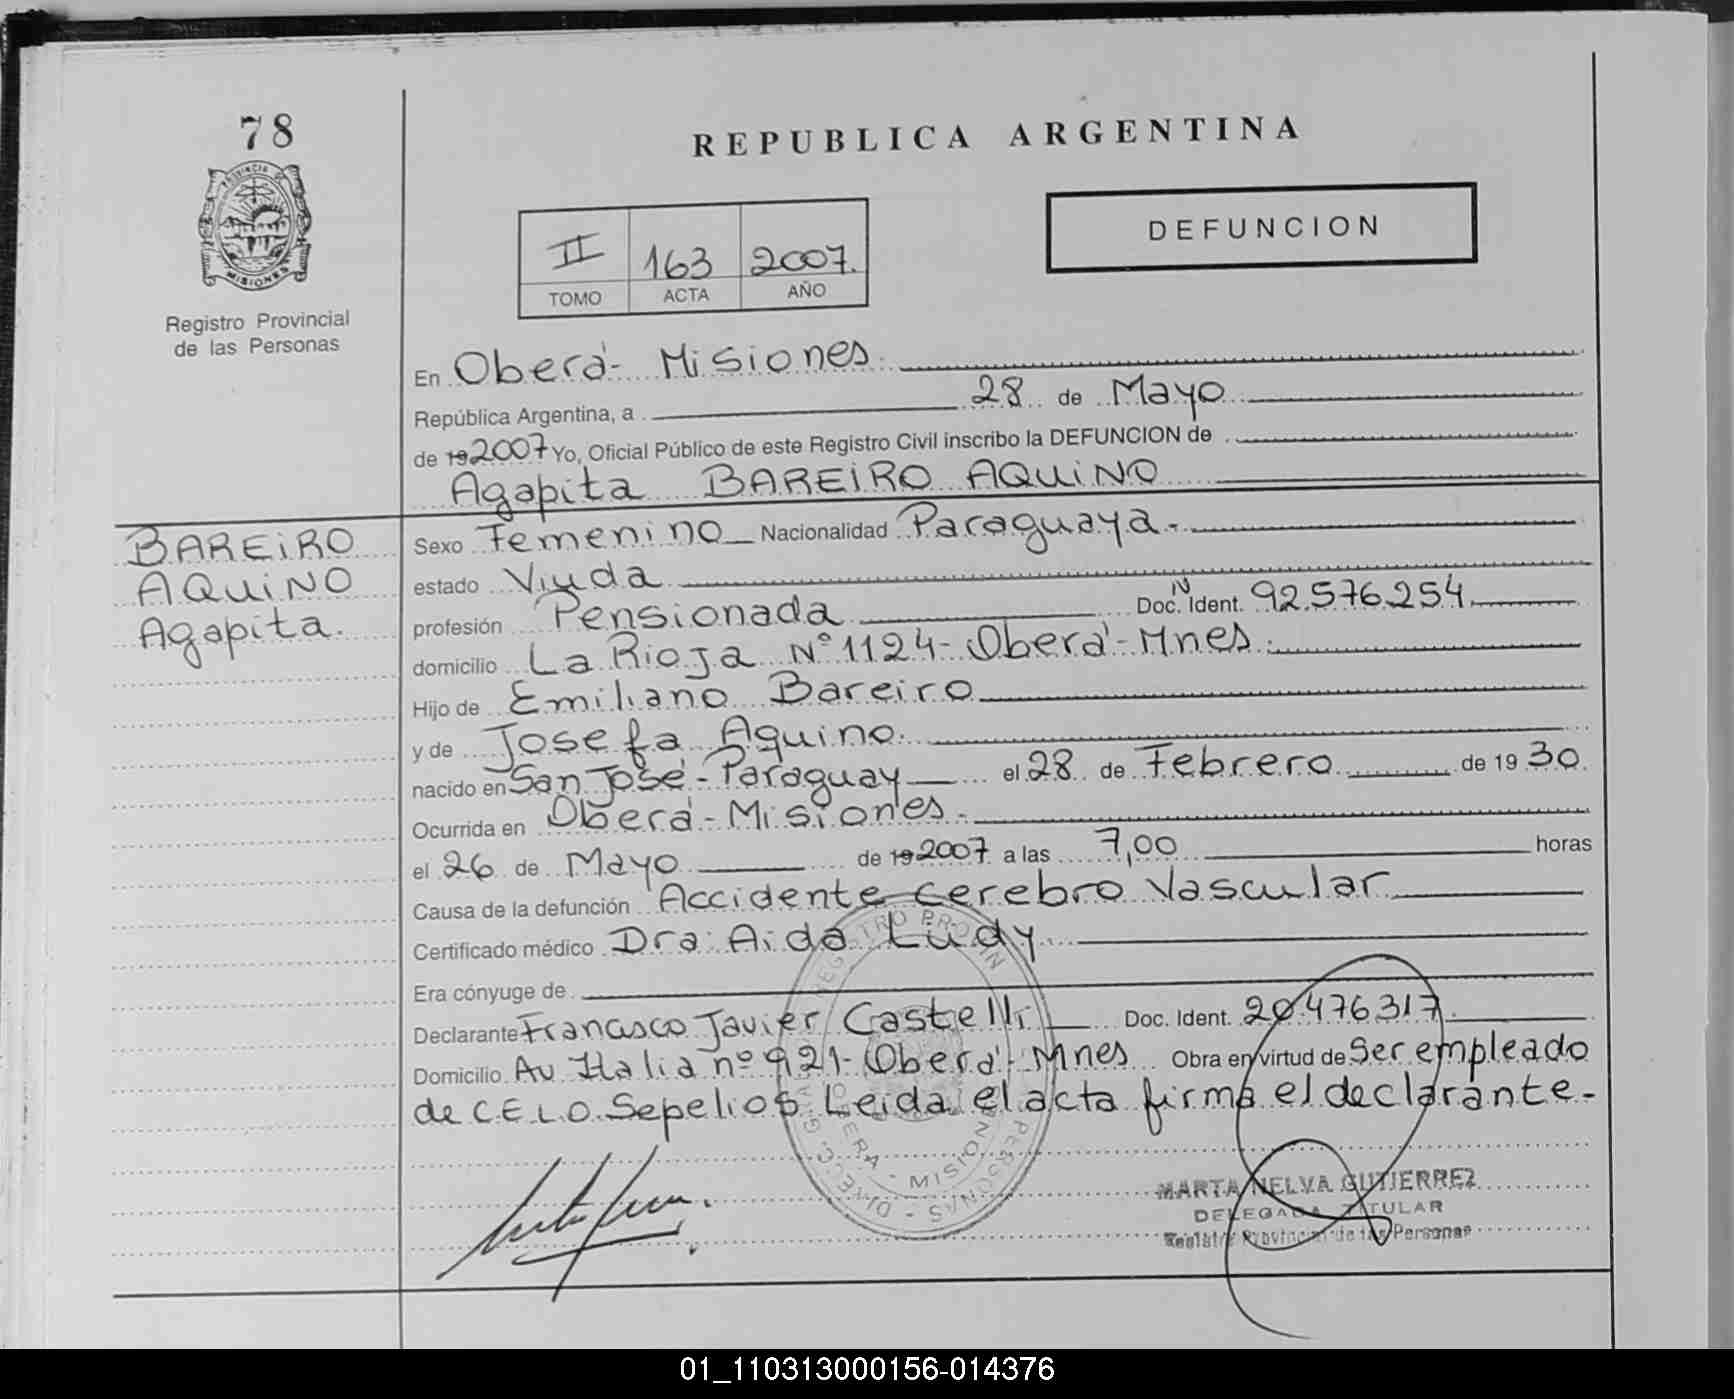 78
PROVINCIA DE
MISIONES
Registro Provincial
de las Personas
REPUBLICA ARGENTINA
II 163 2007.
TOMO ACTA AÑO
DEFUNCION
En Oberá - Misiones.
República Argentina, a 28 de Mayo
de 192007 Yo, Oficial Público de este Registro Civil inscribo la DEFUNCION de
Agapita BAREIRO AQUINO
BAREIRO
AQUINO
Agapita.
Sexo Femenino Nacionalidad Paraguaya.-
estado Viuda
profesión Pensionada Doc. N Ident. 92.576.254
domicilio La Rioja N° 1124 - Oberá - Mnes.
Hijo de Emiliano Bareiro
y de Josefa Aquino.
nacido en San José - Paraguay el 28 de Febrero de 1930.
Ocurrida en Oberá - Misiones.
el 26 de Mayo de 192007 a las 7,00 horas
Causa de la defunción Accidente cerebro Vascular
Certificado médico Dra. Aida Ludy
Era cónyuge de
Declarante Francisco Javier Castelli Doc. Ident. 20.476.317
Domicilio Av Italia nº 921 - Oberá - Mnes Obra en virtud de Ser empleado
de C.E.L.O. Sepelios Leida el acta firma el declarante.-
OBERA - MISIONES
MARTA NELVA GUTIERREZ
DELEGADA TITULAR
Registro Provincial de las Personas
01_110313000156-014376